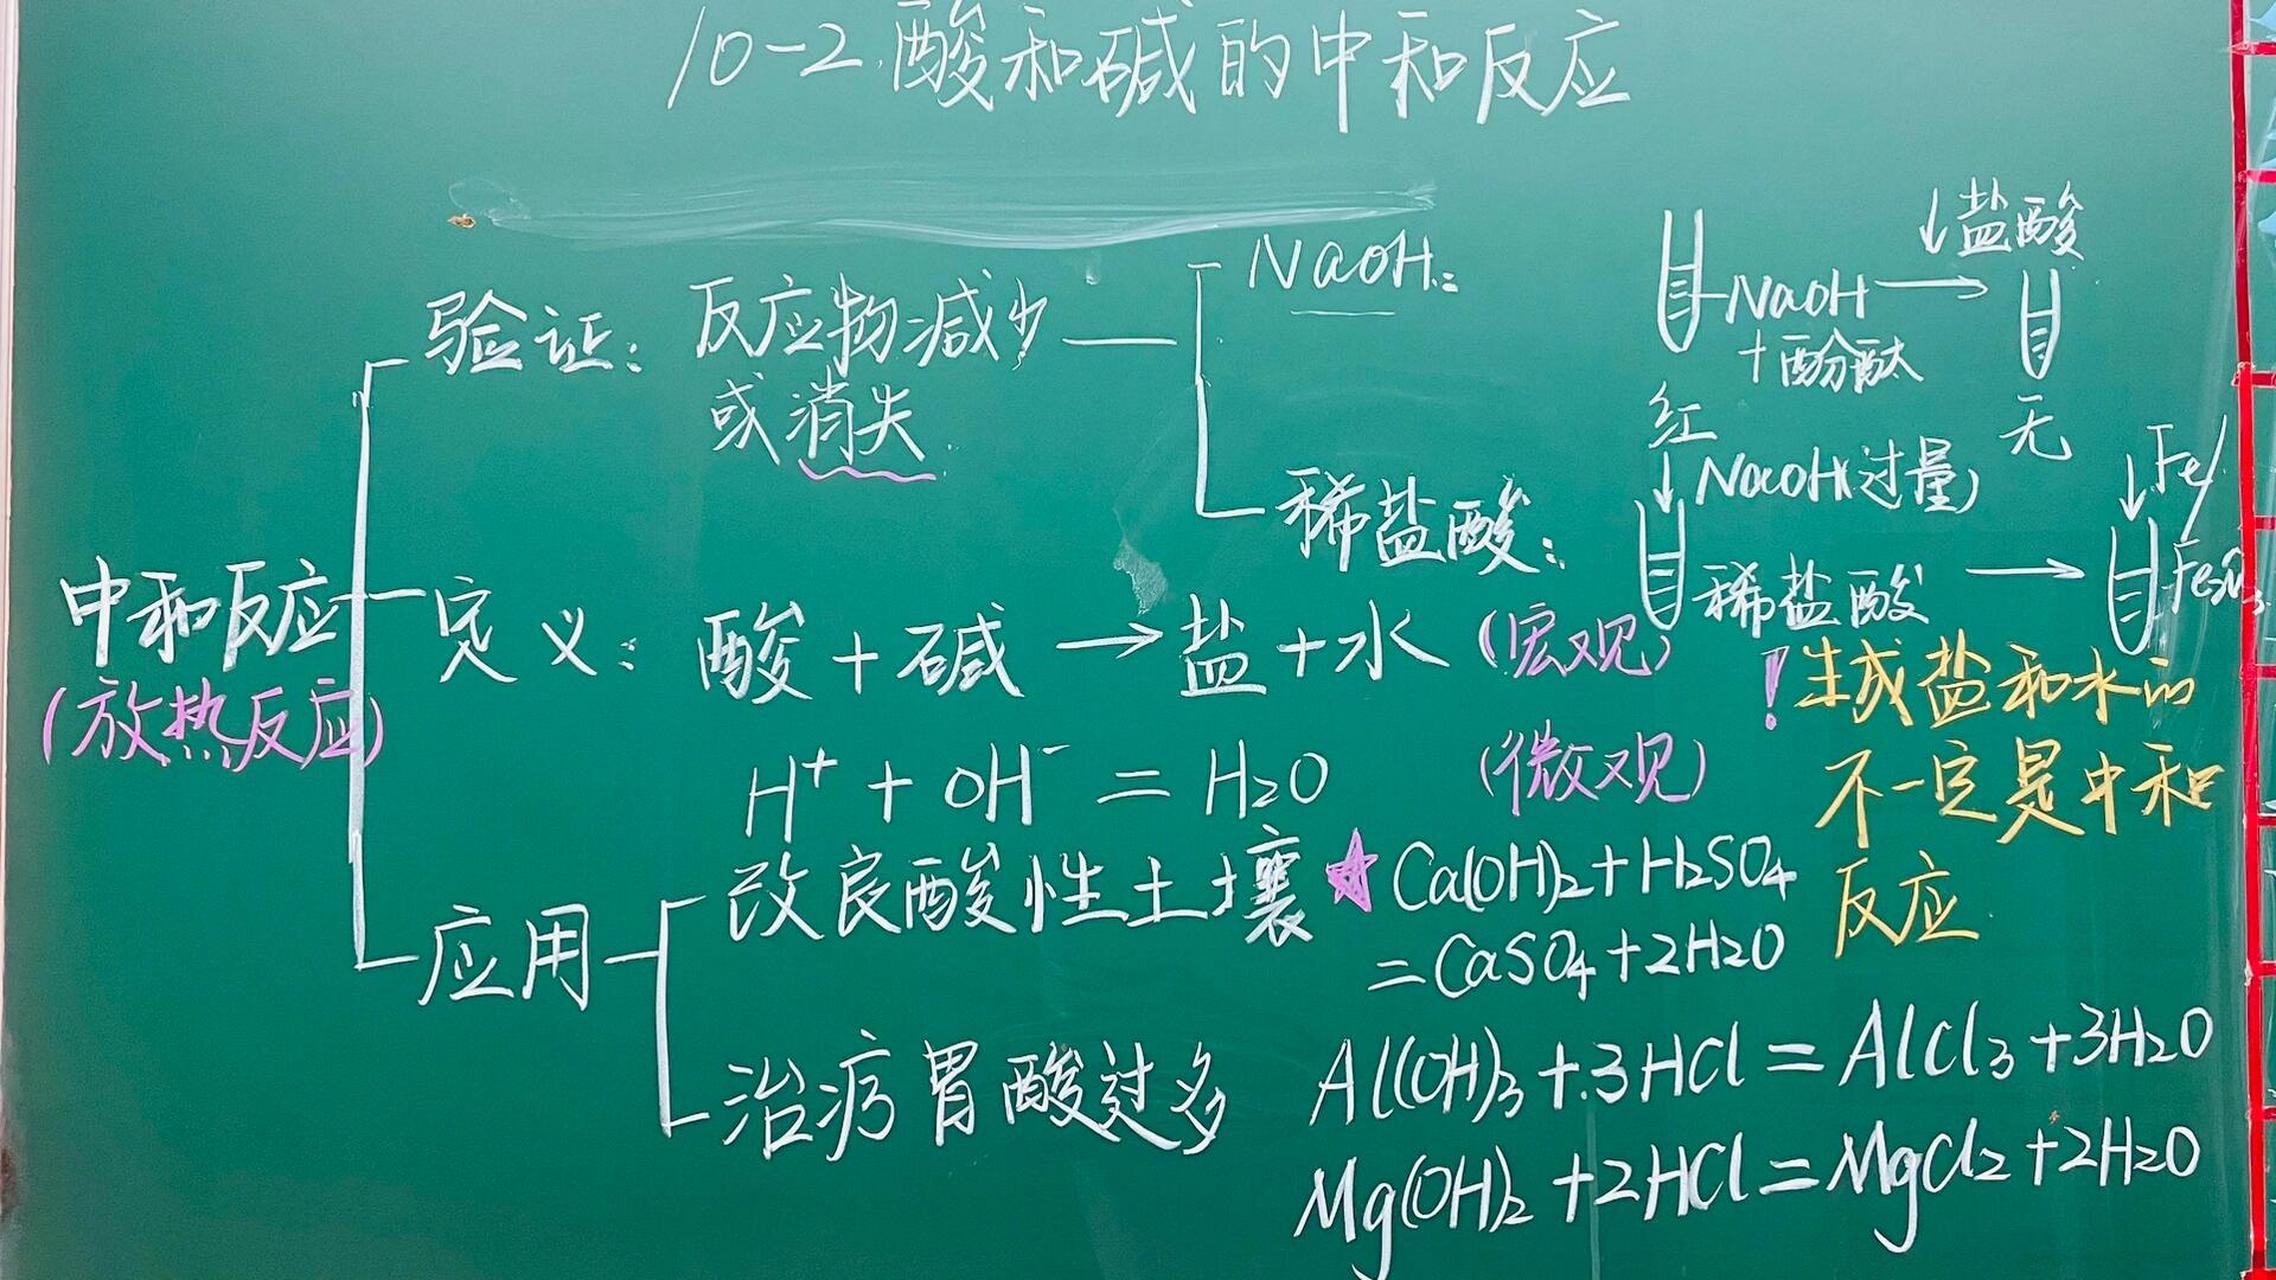 10-2.酸和碱的中和反应
中和反应
(放热反应)
验证: 反应物减少
或消失
NaOH:
NaOH
+酚酞
↓盐酸
红
无
稀盐酸:
↓NaOH(过量)
稀盐酸
↓Fe/
定义: 酸+碱→盐+水 (宏观)
H⁺ + OH⁻ = H₂O (微观)
!生成盐和水的
不一定是中和
反应.
应用
改良酸性土壤 ★ Ca(OH)₂+H₂SO₄
=CaSO₄+2H₂O
治疗胃酸过多 Al(OH)₃+3HCl=AlCl₃+3H₂O
Mg(OH)₂+2HCl=MgCl₂+2H₂O